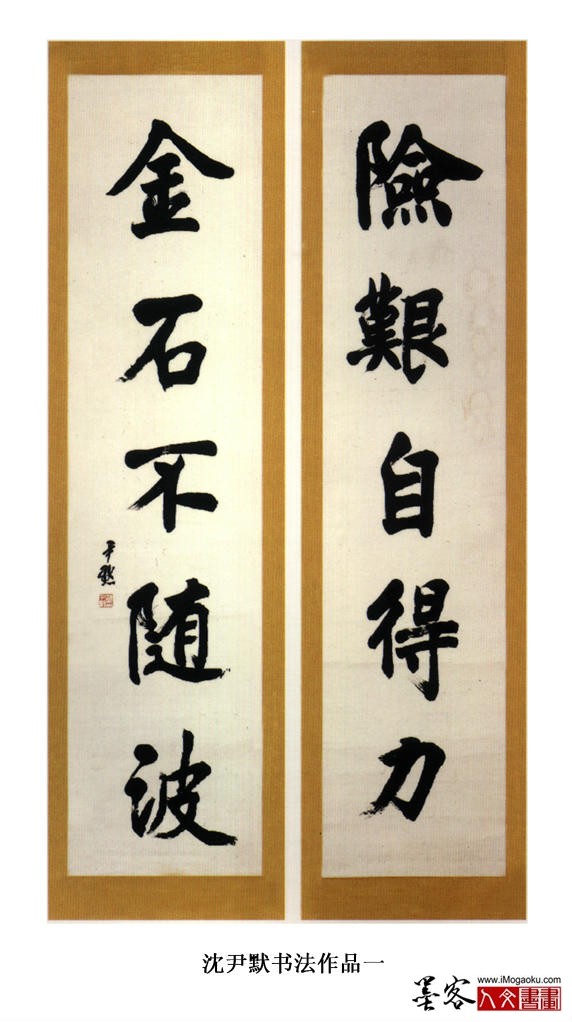 險艱自得力
金石不随波
尹默
沈尹默书法作品一
墨客
www.iMogaoku.com
人文書畫